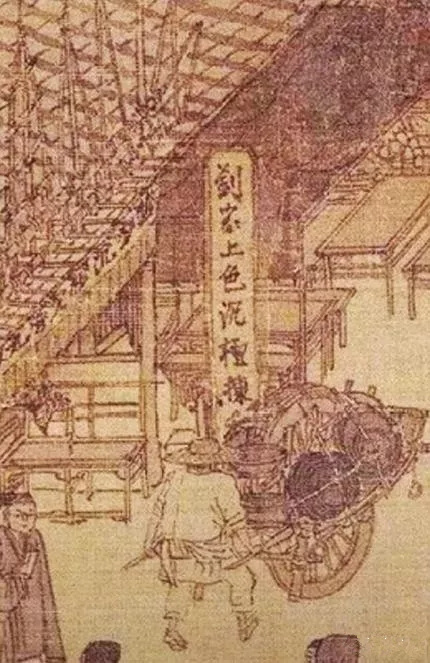 劉家上色沉檀揀